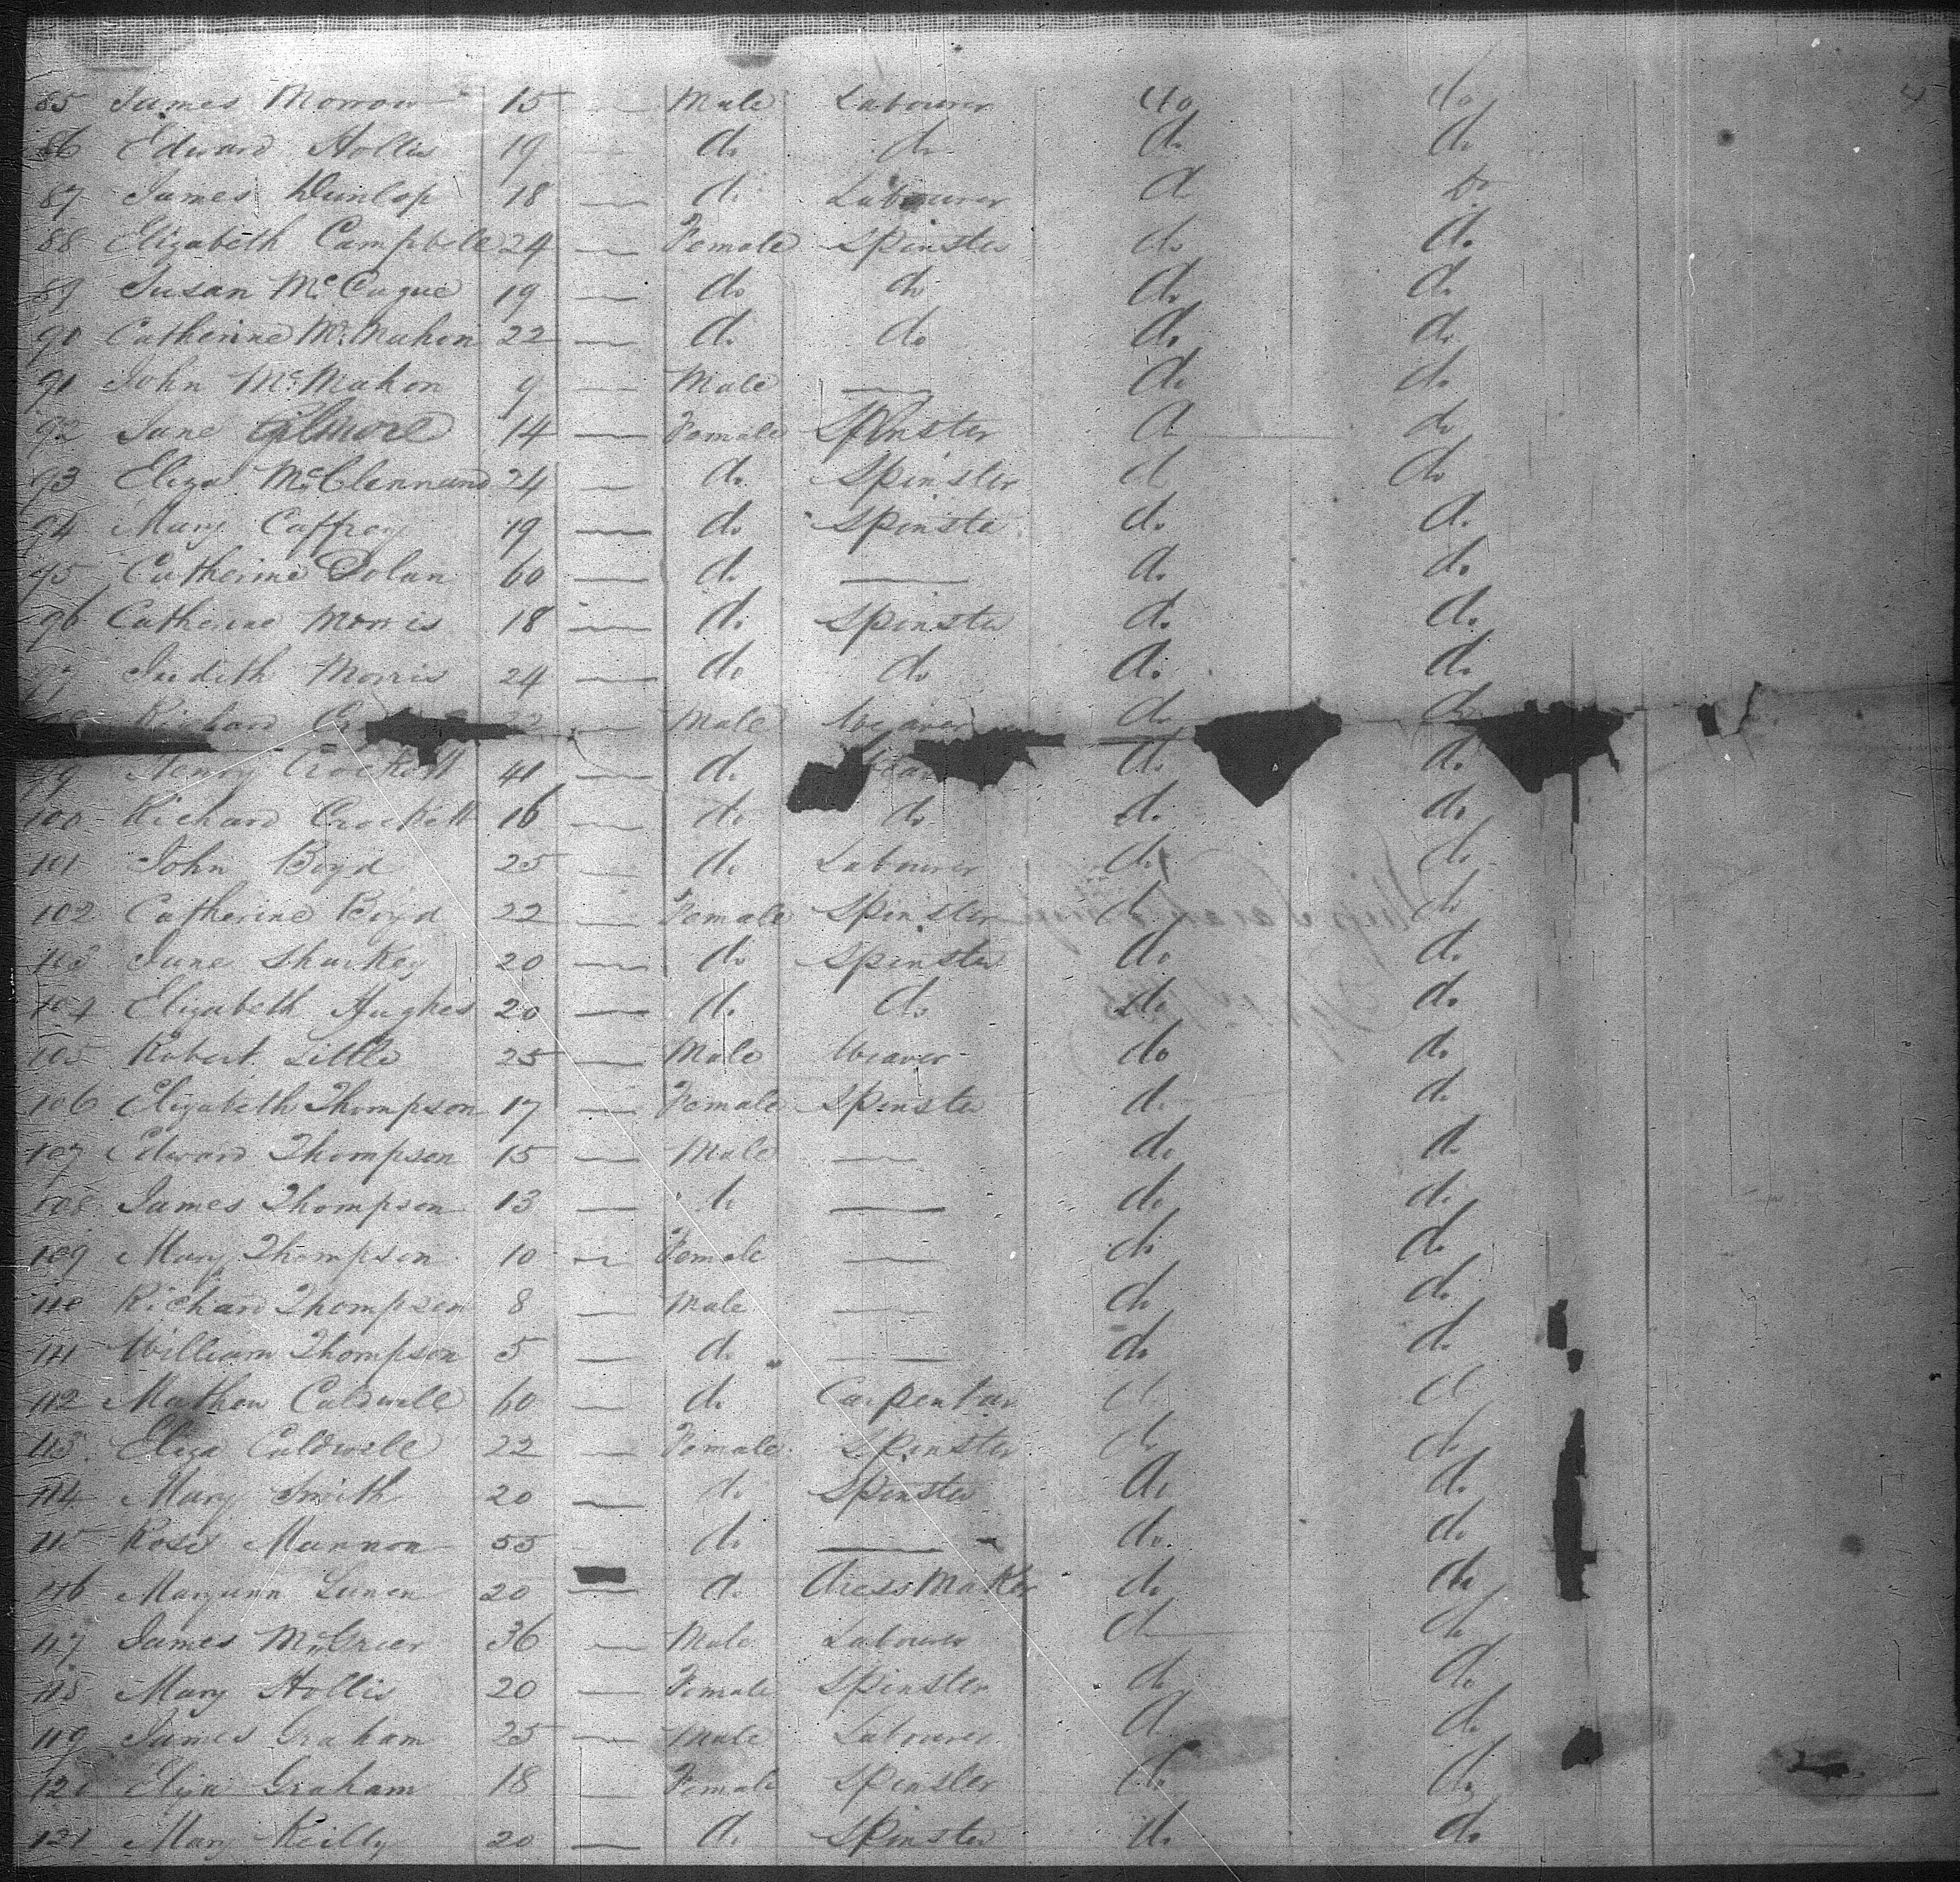 85 James Morrow 15 — Male Labourer do do
86 Edward Hollis 19 — do do do do
87 James Dunlop 18 — do Labourer do do
88 Elizabeth Campbell 24 — Female Spinster do do
89 Susan McCague 19 — do do do do
90 Catherine McMahon 22 — do do do do
91 John McMahon 9 — Male — do do
92 Jane Gilmore 14 — Female Spinster do do
93 Eliza McClennand 24 — do Spinster do do
94 Mary Caffrey 19 — do Spinster do do
95 Catherine Dolan 60 — do — do do
96 Catherine Morris 18 — do Spinster do do
97 Judith Morris 24 — do do do do
Richard — Male Weaver do do
99 Henry Crockett 41 — do do do
100 Richard Crockett 16 — do do do do
101 John Boyd 25 — do Labourer do do
102 Catherine Boyd 22 — Female Spinster do do
103 Jane Sharkey 20 — do Spinster do do
104 Elizabeth Hughes 20 — do do do do
105 Robert Little 25 — Male Weaver do do
106 Elizabeth Thompson 17 — Female Spinster do do
107 Edward Thompson 15 — Male — do do
108 James Thompson 13 — do — do do
109 Mary Thompson 10 — Female — do do
110 Richard Thompson 8 — Male — do do
111 William Thompson 5 — do — do do
112 Mathew Caldwell 60 — do Carpenter do do
113 Eliza Caldwell 22 — Female Spinster do do
114 Mary Smith 20 — do Spinster do do
115 Rose Mannon 55 do — do do
116 Maryann Lunen 20 — do Dress Maker do do
117 James McGreer 36 — Male Labourer do do
118 Mary Hollis 20 — Female Spinster do do
119 James Graham 25 — Male Labourer do do
120 Eliza Graham 18 — Female Spinster do do
121 Mary Reilly 20 — do Spinster do do